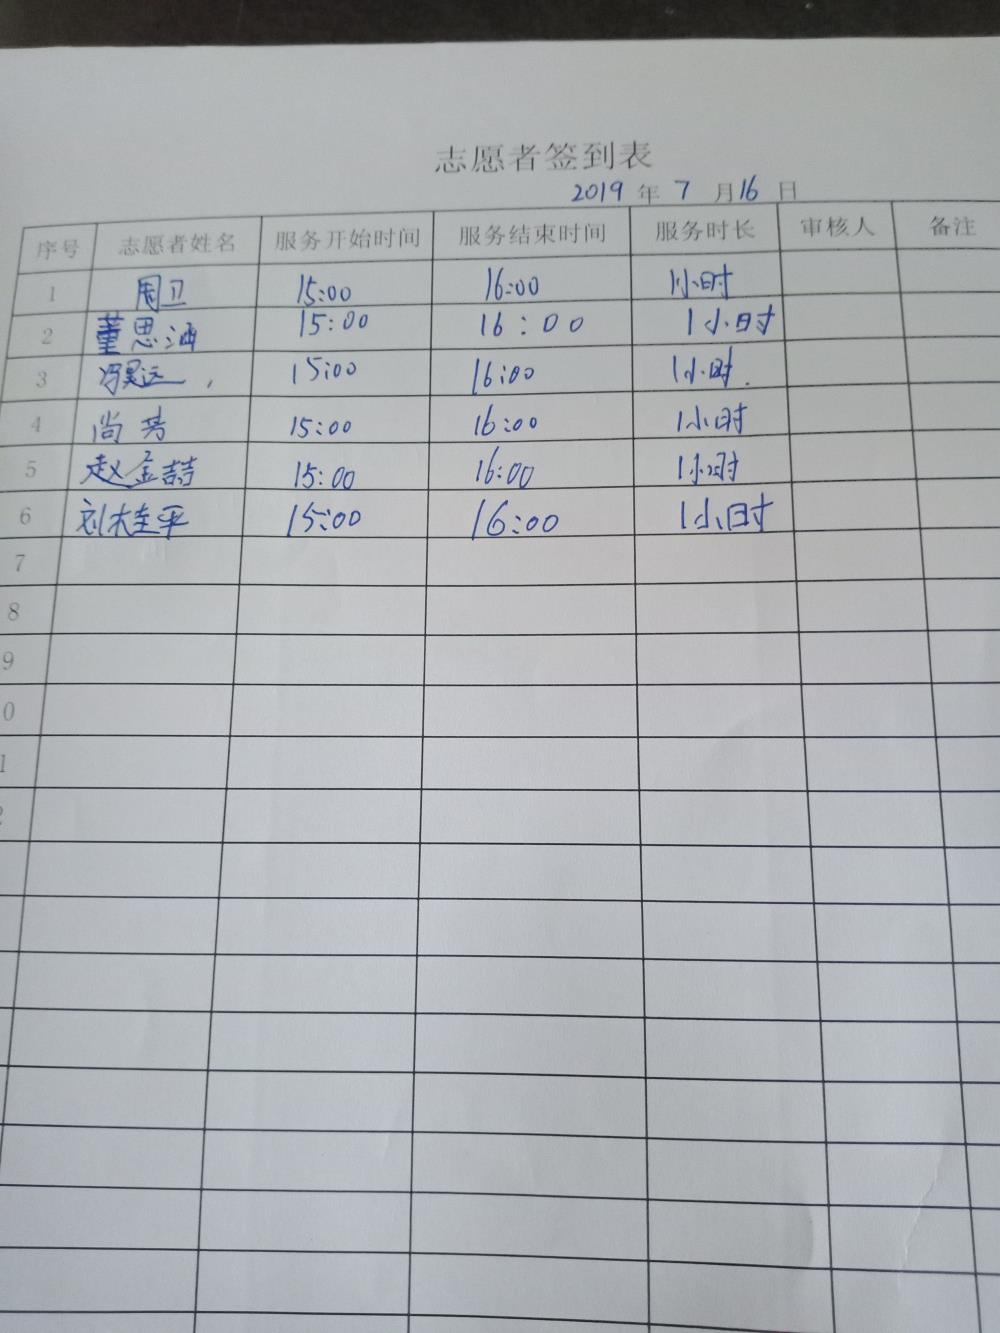 志愿者签到表
2019 年 7 月 16 日
序号 志愿者姓名 服务开始时间 服务结束时间 服务时长 审核人 备注
1 周卫 15:00 16:00 1小时
2 董思涵 15:00 16:00 1小时
3 冯昊远 15:00 16:00 1小时
4 尚芳 15:00 16:00 1小时
5 赵金喆 15:00 16:00 1小时
6 15:00 16:00 1小时
7
8
9
0
1
2